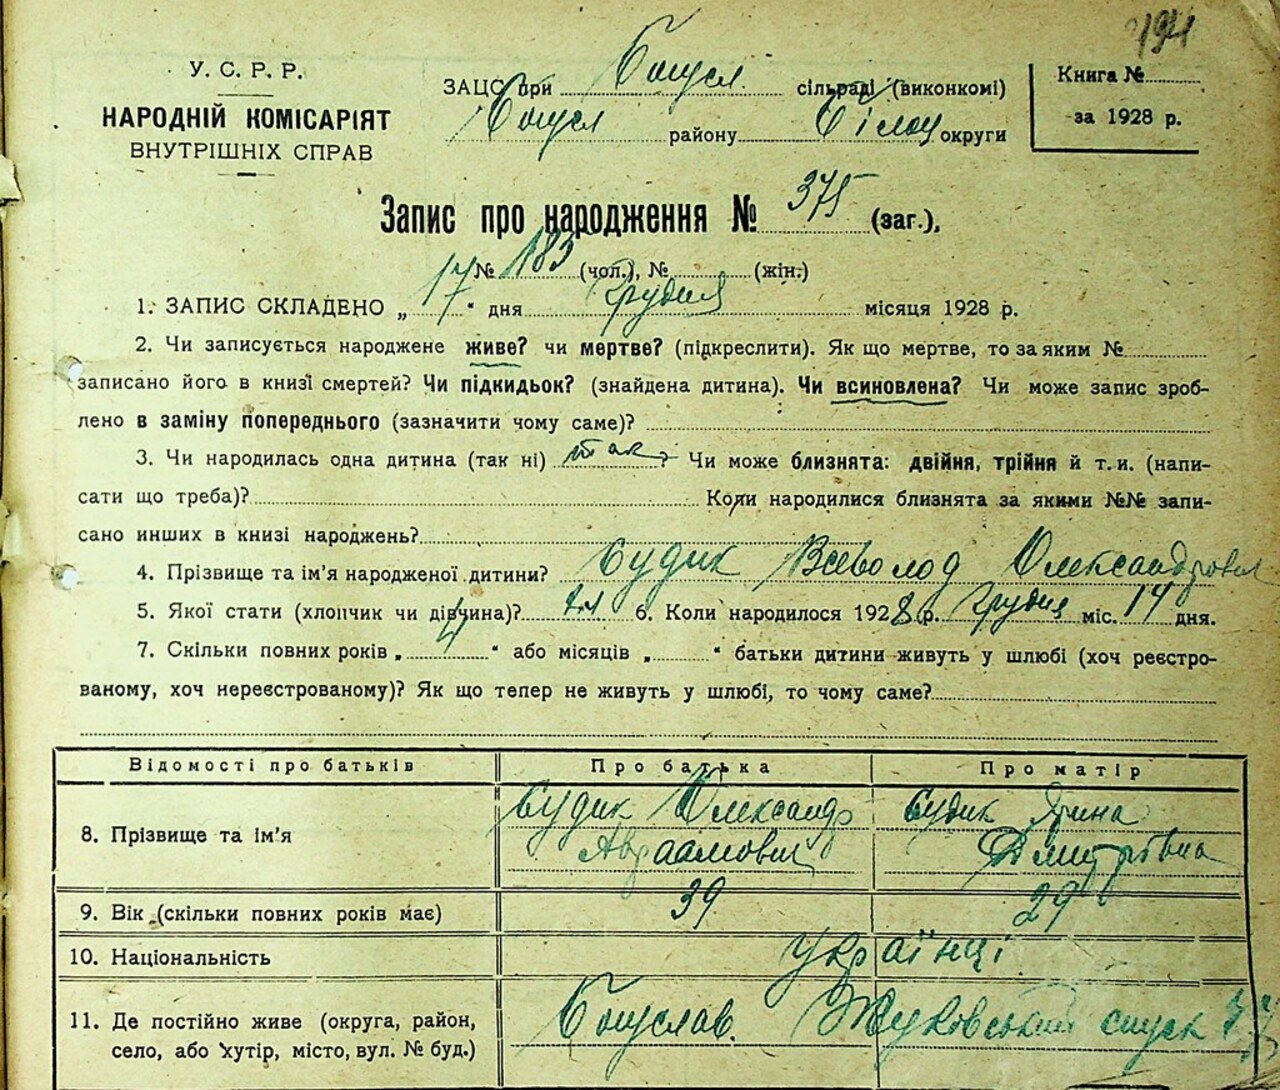 194
У. С. Р. Р.
НАРОДНІЙ КОМІСАРІЯТ
ВНУТРІШНІХ СПРАВ
ЗАЦС при Богусл. сільраді (виконкомі)
Богусл району Білоц округи
Книга №
за 1928 р.
Запис про народження № 375 (заг.),
№ 183 (чол.), № (жін.)
1. ЗАПИС СКЛАДЕНО „ 17 " дня Грудня місяця 1928 р.
2. Чи записується народжене живе? чи мертве? (підкреслити). Як що мертве, то за яким №
записано його в книзі смертей? Чи підкидьок? (знайдена дитина). Чи всиновлена? Чи може запис зроб-
лено в заміну попереднього (зазначити чому саме)?
3. Чи народилась одна дитина (так ні) так ? Чи може близнята: двійня, трійня й т. и. (напи-
сати що треба)? Коли народилися близнята за якими №№ запи-
сано инших в книзі народжень?
4. Прізвище та ім'я народженої дитини? Будик Всеволод Олександрович
5. Якої стати (хлопчик чи дівчина)? 6. Коли народилося 1928 р. Грудня міс. 14 дня.
7. Скільки повних років „ 4 " або місяців „ " батьки дитини живуть у шлюбі (хоч реєстро-
ваному, хоч нереєстрованому)? Як що тепер не живуть у шлюбі, то чому саме?
Відомості про батьків Про батька Про матір
8. Прізвище та ім'я Будик Олександр Авраамович Будик Ярина Дмитрівна
9. Вік (скільки повних років має) 39 29
10. Національність українці
11. Де постійно живе (округа, район,
село, або хутір, місто, вул. № буд.) Богуслав. Жуковський спуск